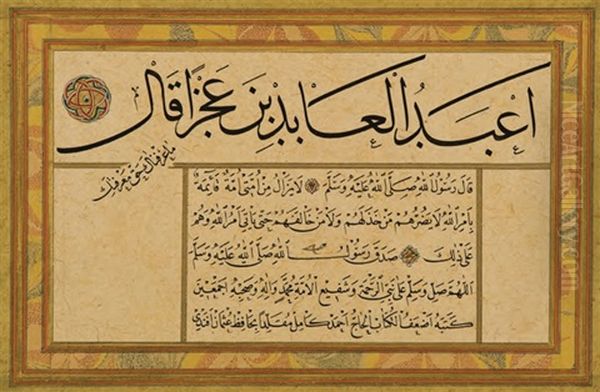 اعبد العابدين عجزا قال
ما عرفناك حق معرفتك
قال رسول الله صلى الله عليه وسلم لا يزال من امتي امة قائمة
بامر الله لا يضرهم من خذلهم ولا من خالفهم حتى ياتي امر الله وهم
على ذلك صدق رسول الله صلى الله عليه وسلم
اللهم صل وسلم على نبي الرحمة وشفيع الامة محمد واله وصحبه اجمعين
كتبه اضعف الكتاب الحاج احمد كامل مقلدا بحافظ عثمان افندي